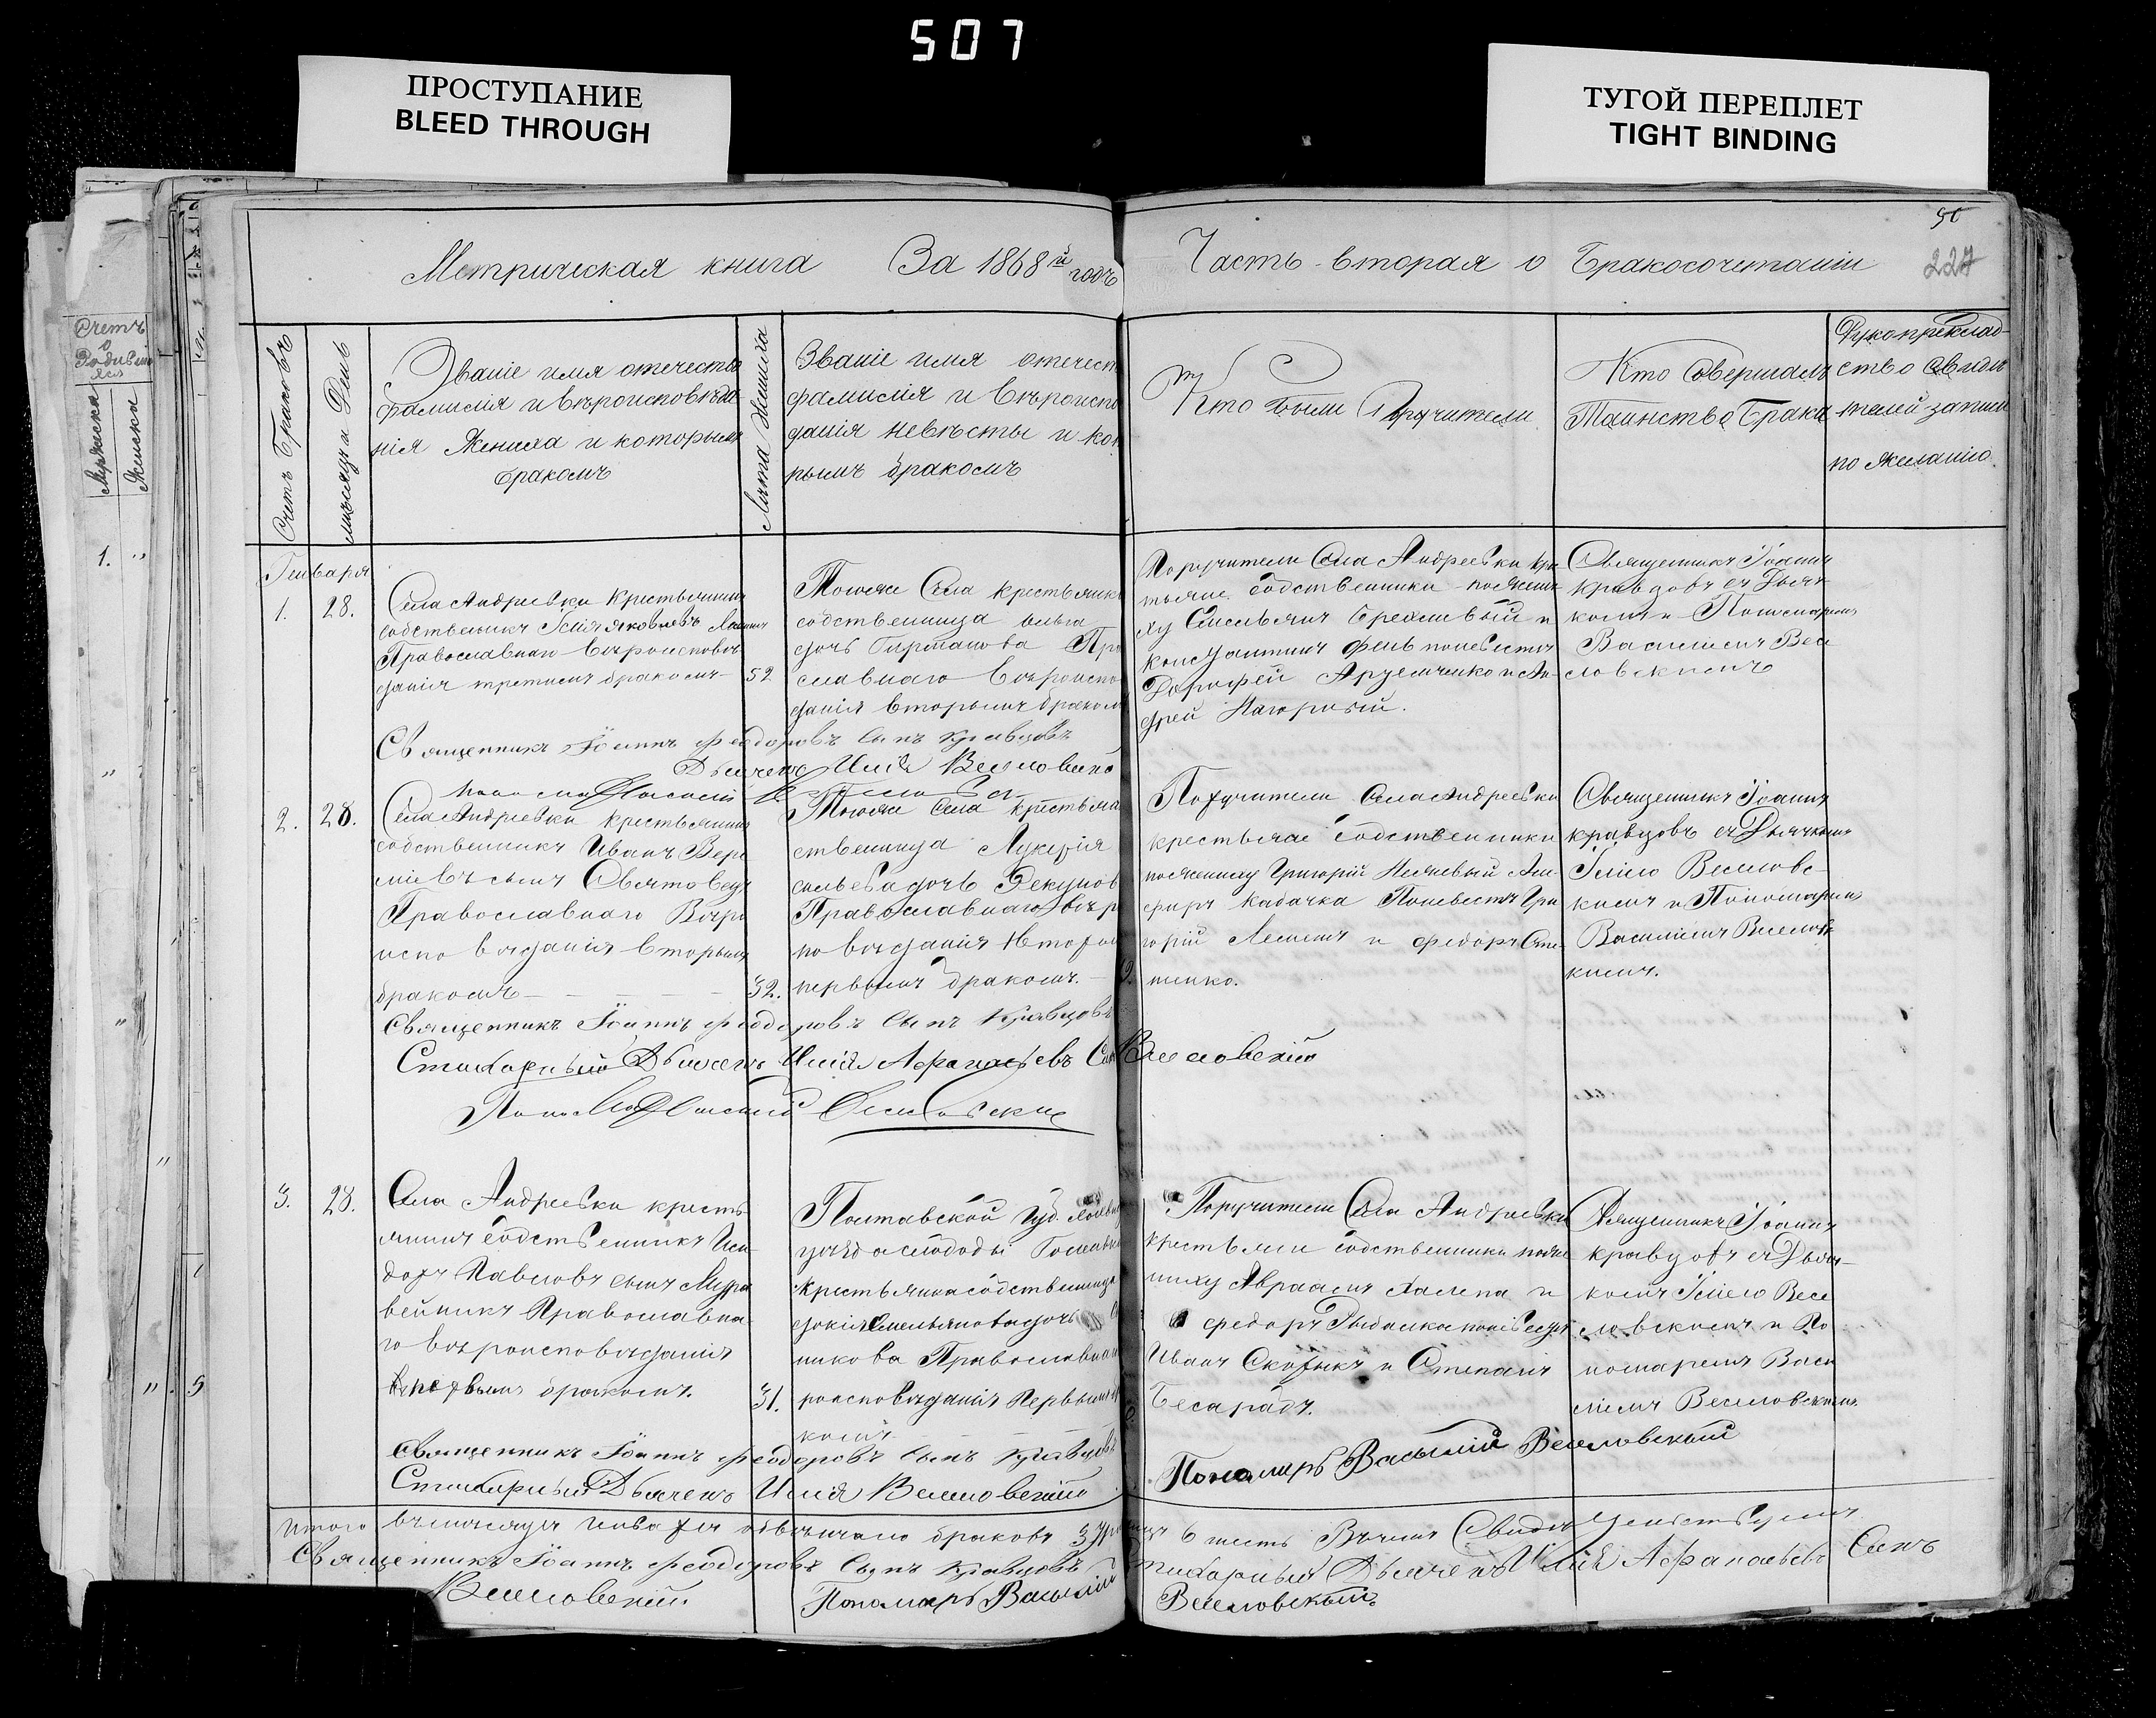 507
ПРОСТУПАНИЕ
BLEED THROUGH
ТУГОЙ ПЕРЕПЛЕТ
TIGHT BINDING
50
227
Метрическая книга За 1868 й годъ
Часть вторая о Бракосочетании
Счетъ
о
Мужеска
Женска
1. "
Счетъ Браковъ
Месяцъ и День
Званіе имя отечество
фамилія и вѣроисповѣда
нія Жениха и которымъ
бракомъ
Лѣта Жениха
Званіе имя отечест
фамилія и вѣроиспо
данія невѣсты и ко
рымъ бракомъ
Кто были Поручители
Кто Совершалъ
Таинство Брака
Рукоприклад
ство Свидѣ
телей записи
по желанію.
Генваря
1. 28.
Села Андреевки Крестьянинъ
собственникъ Ілія Яковлевъ
Православнаго вѣроисповѣ
данія третимъ бракомъ 52
Тогоже Села крестьянка
собственница
дочь Пра
славнаго вѣроиспо
данія вторымъ браком
Поручители Села Андреевки кре
стьяне собственники по жени
ху Емельянъ и
Константинъ по невѣстѣ
Дорофей и Ан
дрей Нагорный.
Священникъ Іоаннъ
Кравцовъ съ Дьяч
комъ и Пономаремъ
Василіемъ Весе
ловскимъ
Священникъ Іоаннъ Феодоровъ Сынъ Кравцовъ
Дьячекъ Илія Веселовскій
2. 28.
Села Андреевки крестьянинъ
собственникъ Иванъ Вере
міевъ сынъ
Православнаго Вѣро
исповѣданія вторымъ
бракомъ 32.
Тогоже Села крестьян
ственница Лукерія
сильева дочь
Православнаго вѣр
повѣданія
первымъ бракомъ.
Поручители Села Андреевки
крестьяне собственники
по жениху Григорій
Кабачка По невѣстѣ Гри
горій и Федоръ Сте
пенко.
Священникъ Іоаннъ
Кравцовъ съ Дьячкомъ
Іліею Веселовс
кимъ и Пономаремъ
Василіемъ Веселовс
кимъ.
Священникъ Іоаннъ Феодоровъ Сынъ Кравцовъ
Стихарный Дьячекъ Илія Афанасьевъ Сынъ Веселовскій
3. 28.
Села Андреевки кресть
янинъ собственникъ Иси
доръ Павловъ сынъ Мура
вейникъ Православна
го вѣроисповѣданія
первымъ бракомъ. 31.
Полтавской Губ.
уѣзда слободы
крестьянка собственница
Емельянова дочь
никова Православнаг
роисповѣданія Первымъ
комъ
Поручители Села Андреевки
крестьяне собственники по же
ниху Авраамъ и
Федоръ Рыбалка по невѣстѣ
Иванъ и Степанъ
Бесарабъ.
Священникъ Іоаннъ
Кравцовъ съ Дьяч
комъ Іліею Весе
ловскимъ и По
номаремъ Васи
ліемъ Веселовскимъ.
Священникъ Іоаннъ Феодоровъ Сынъ Кравцовъ
Стихарный Дьячекъ Илія Веселовскій
Пономарь Василий Веселовскый
Итого въ месяцѣ Генварѣ обвѣнчано браковъ 3
шесть Въ чемъ Свидѣтельствуемъ
Священникъ Іоаннъ Феодоровъ Сынъ Кравцовъ Стихарный Дьячекъ Илія Афанасьевъ Сынъ
Веселовскій Пономарь Василий Веселовскый